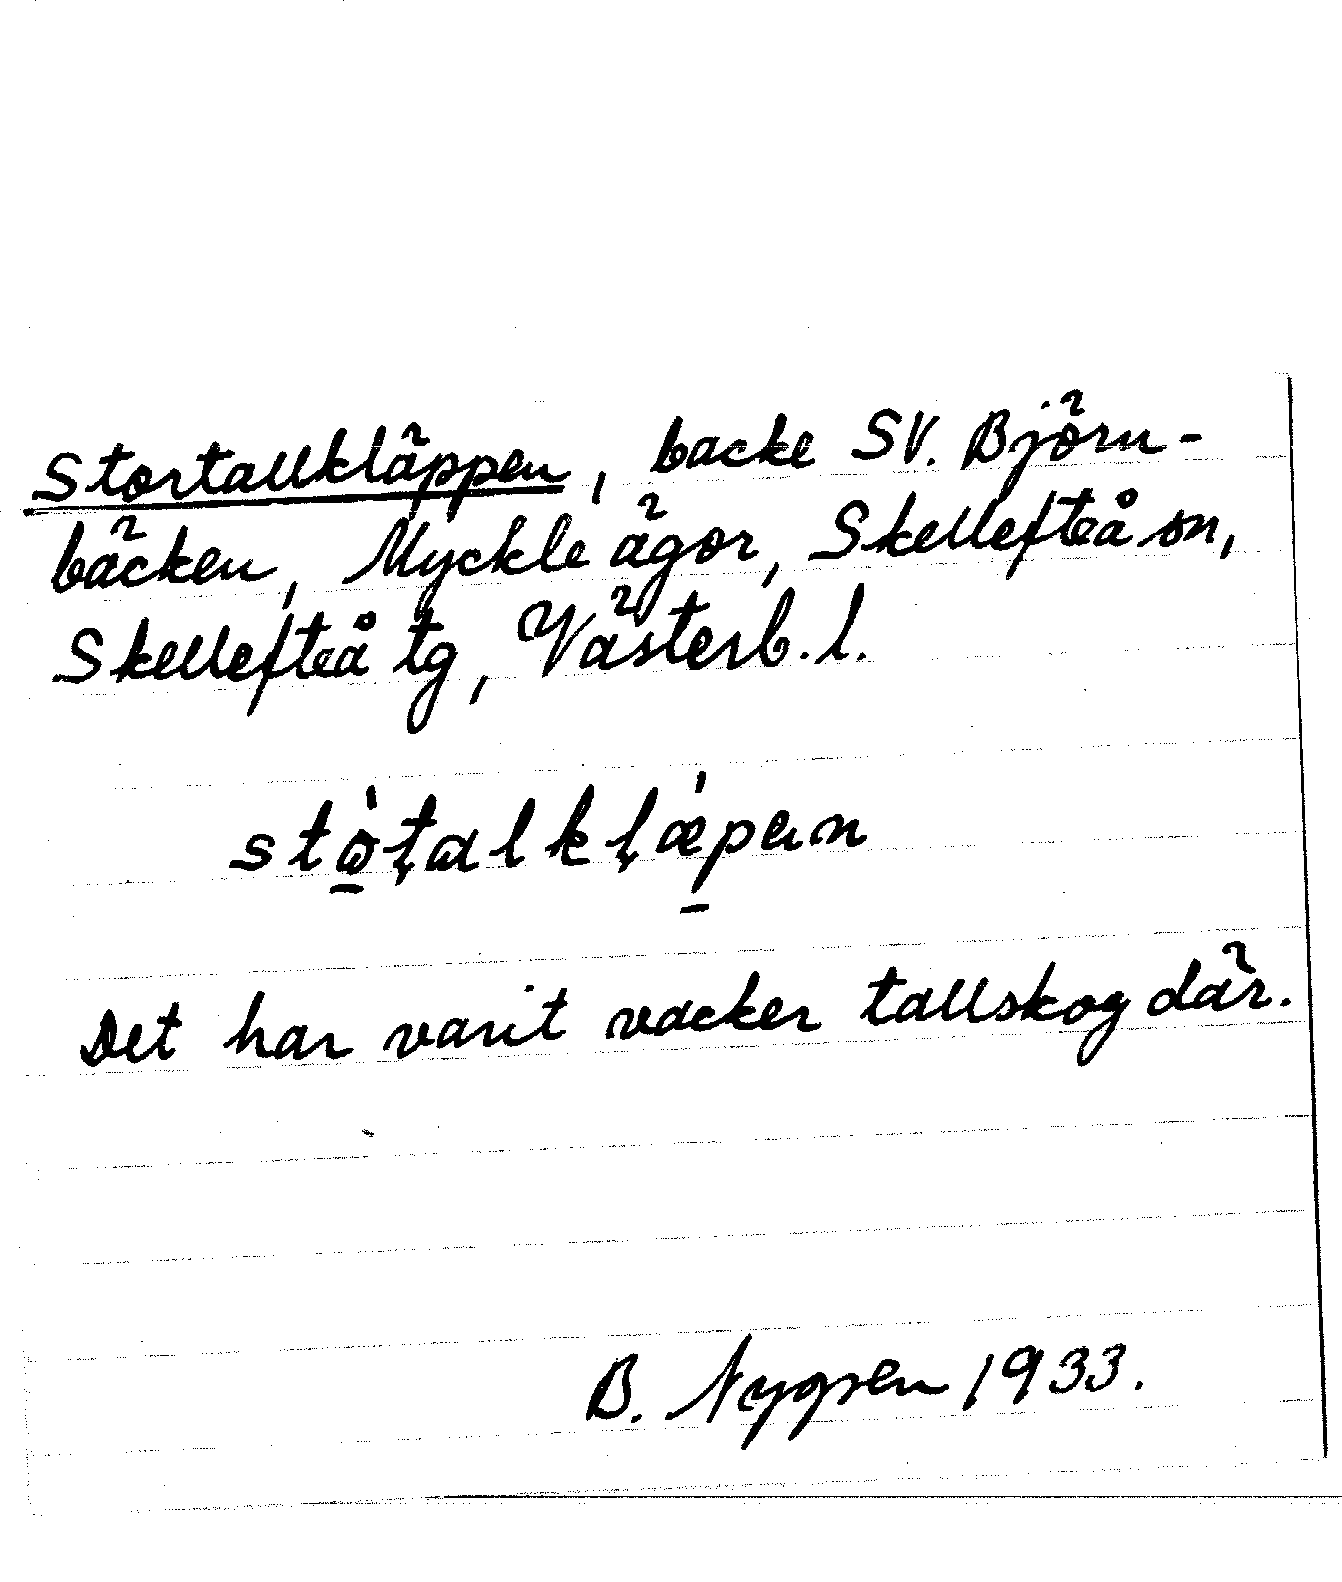 Stortallkläppen, backe SV. Björn-
bäcken, Myckle ägor, Skellefteå sn,
Skellefteå tg, Västerb. l.
Det har varit vacker tallskog där.
B. Nygren 1933.